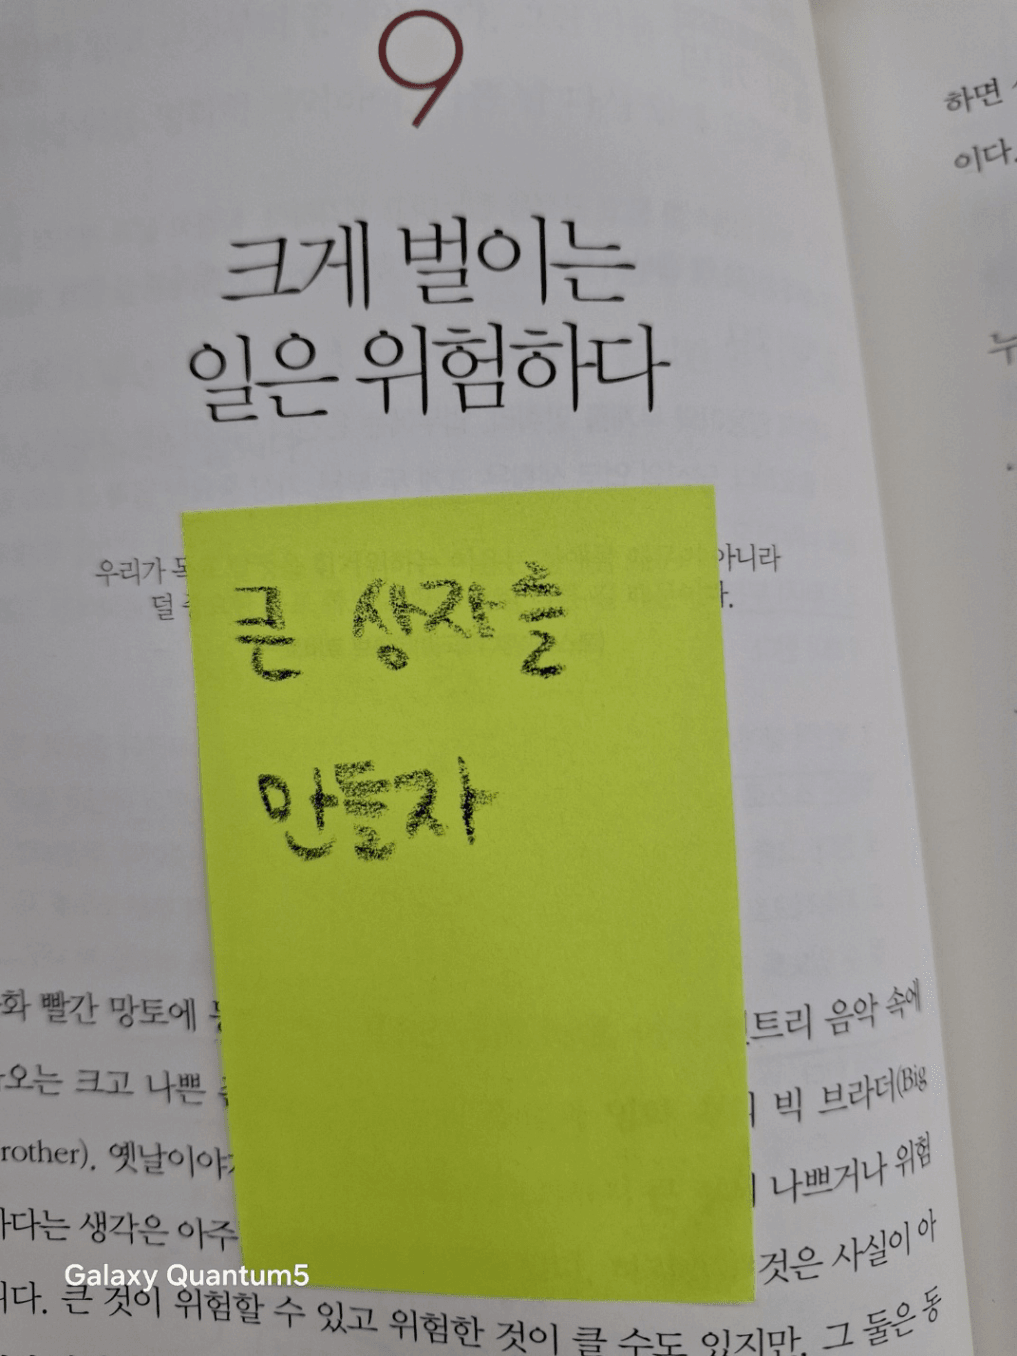 9
하면
이다.
크게 벌이는
일은 위험하다
우리가 아니라
덜
큰 상자를
만들자
빨간 망토에 트리 음악 속에
크고 나쁜 빅 브라더(Big
rother). 옛날이야 나쁘거나 위험
생각은 아주 것은 사실이 아
니다. 큰 것이 위험할 수 있고 위험한 것이 클 수도 있지만, 그 둘은 동
Galaxy Quantum5